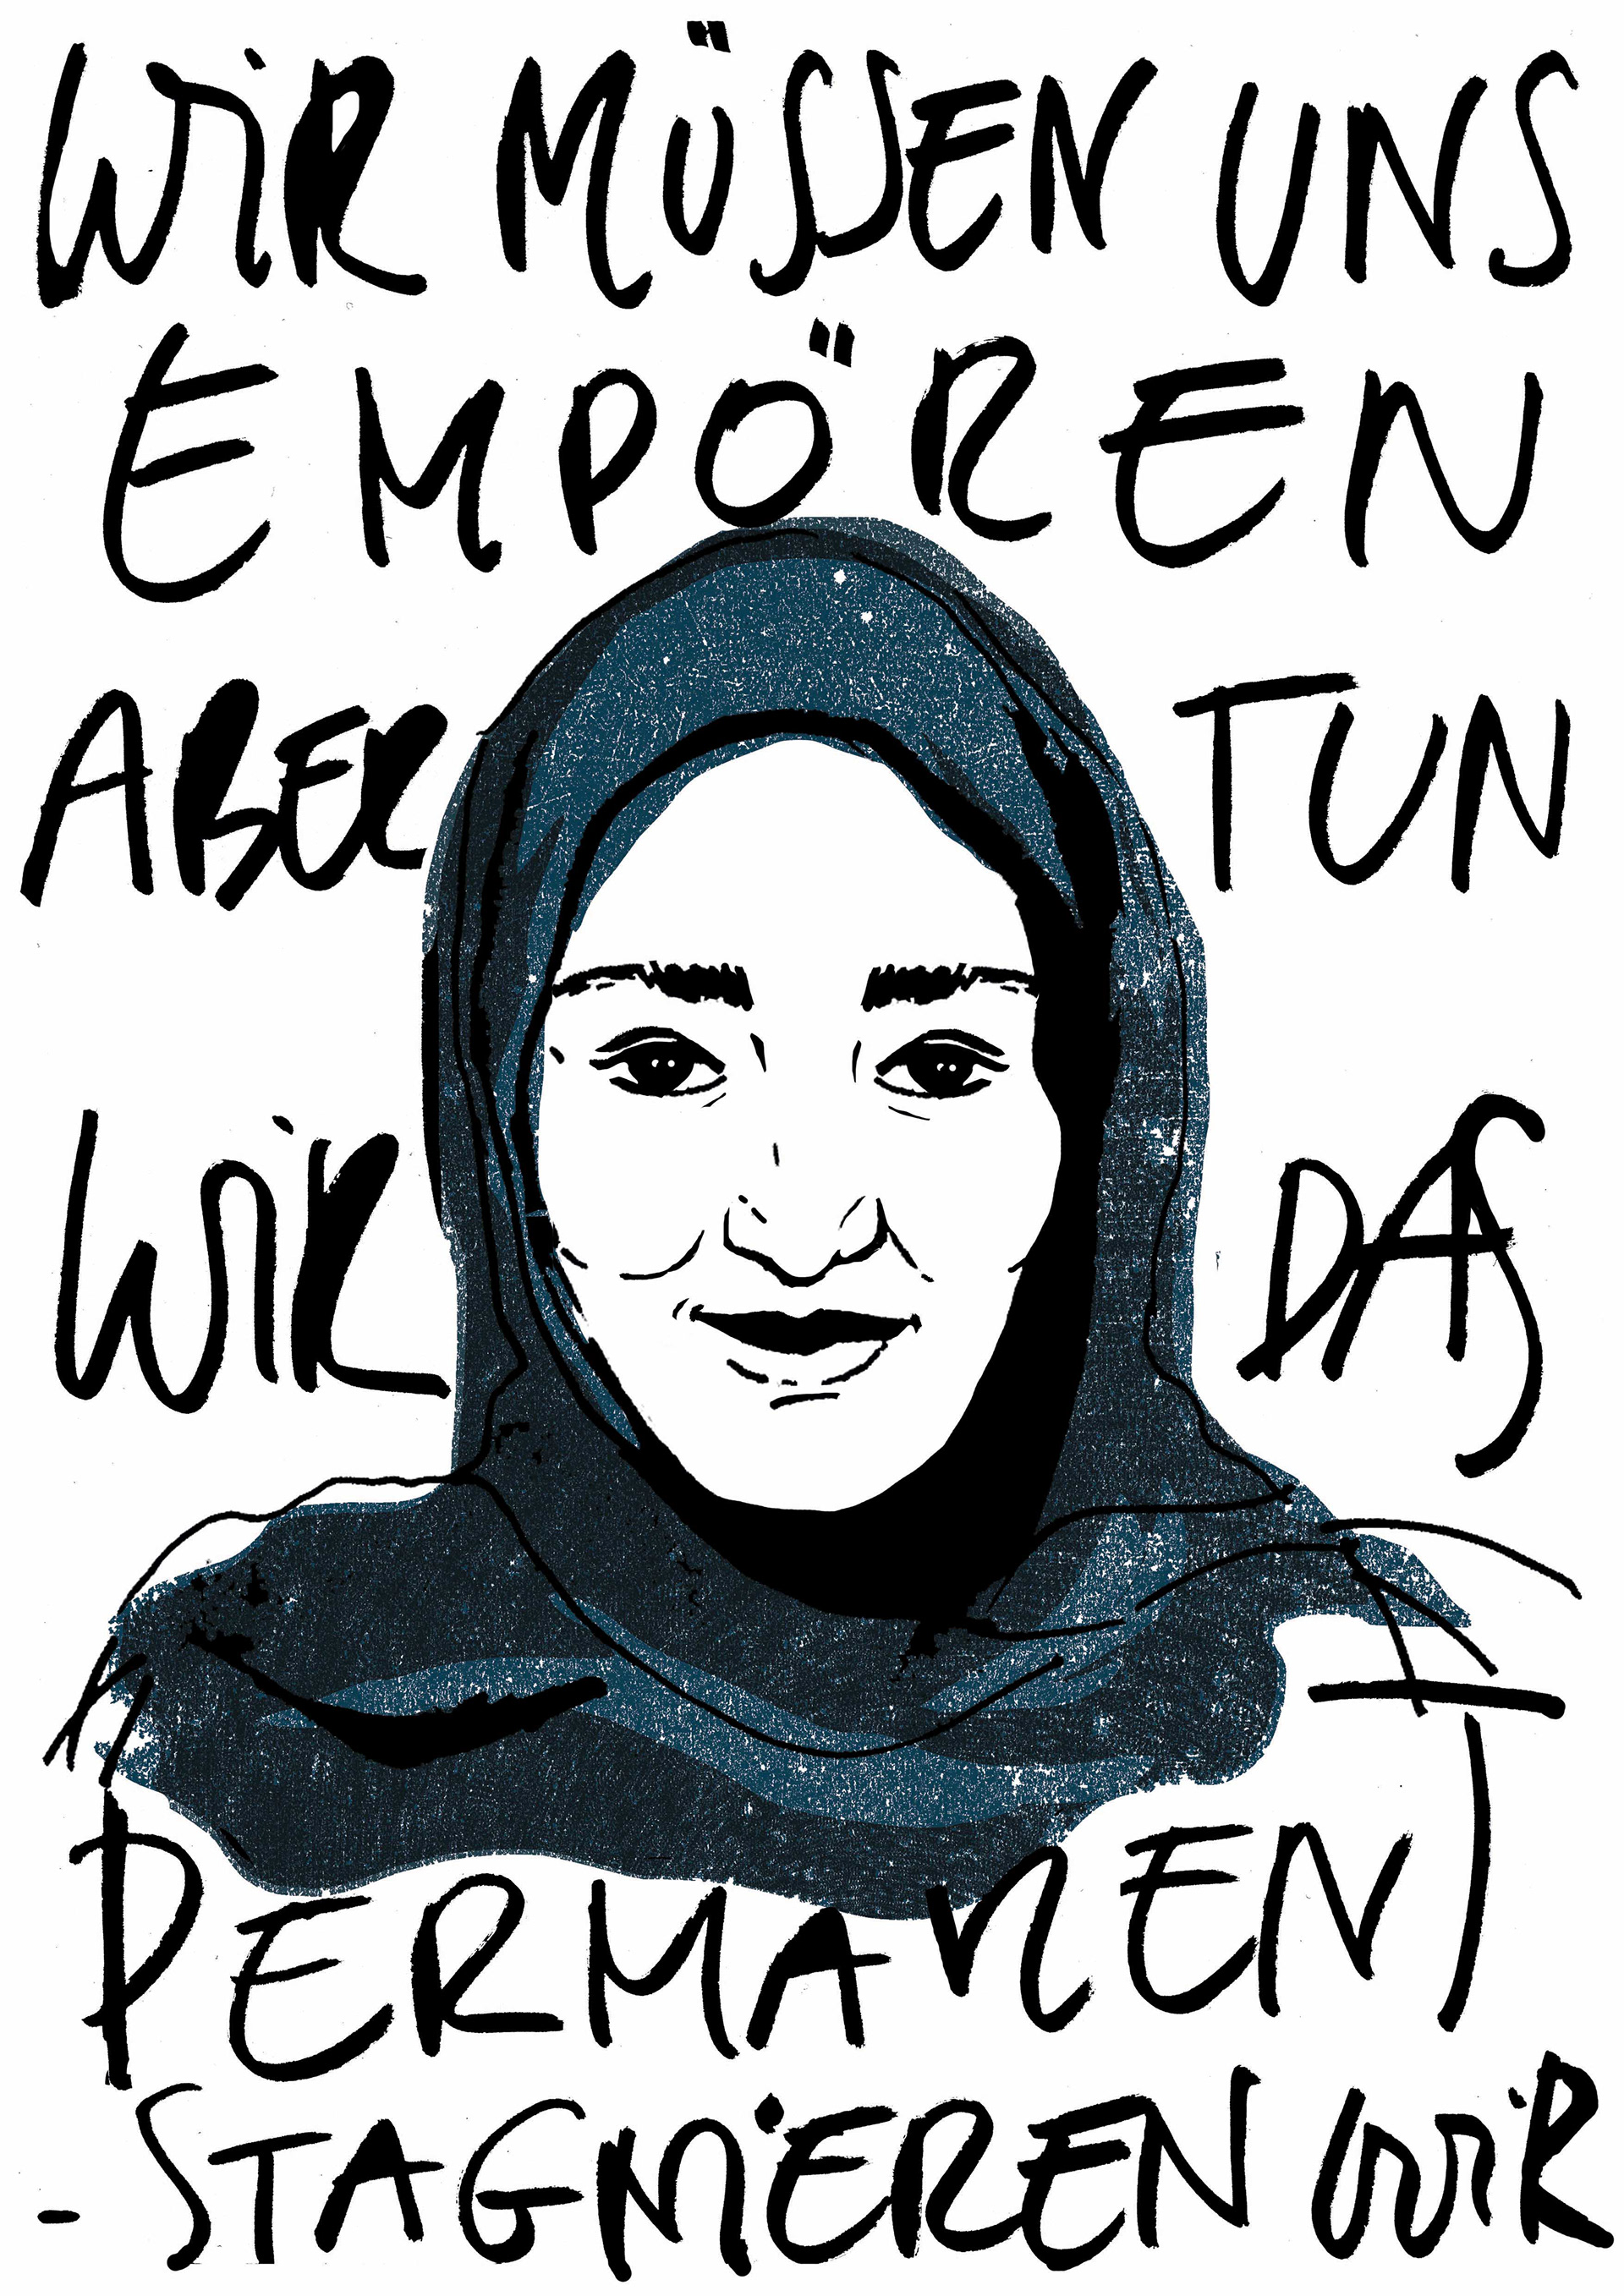 WiR MÜSSEN UNS
EMPÖREN
ABER TUN
WiR DAS
PERMANENT
- STAGNiEREN WiR